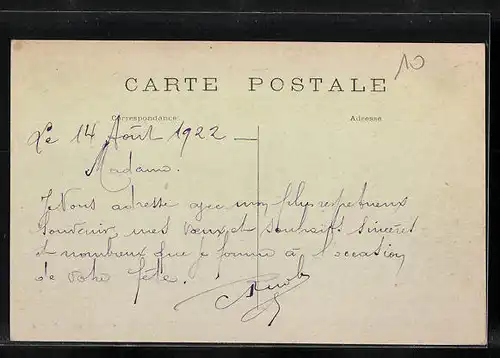 10
CARTE POSTALE
Correspondance
Adresse
Le 14 Août 1922 —
Madame.
Je Vous adresse avec mon plus respectueux
souvenir, mes vœux et souhaits sincères
et nombreux que je forme à l'occasion
de votre fête.